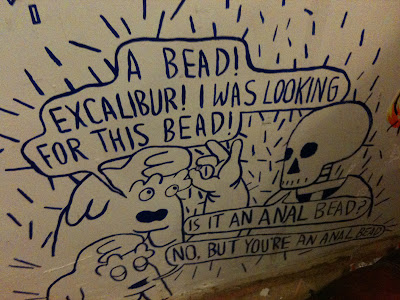 A BEAD!
EXCALIBUR! I WAS LOOKING
FOR THIS BEAD!
IS IT AN ANAL BEAD?
NO, BUT YOU'RE AN ANAL BEAD